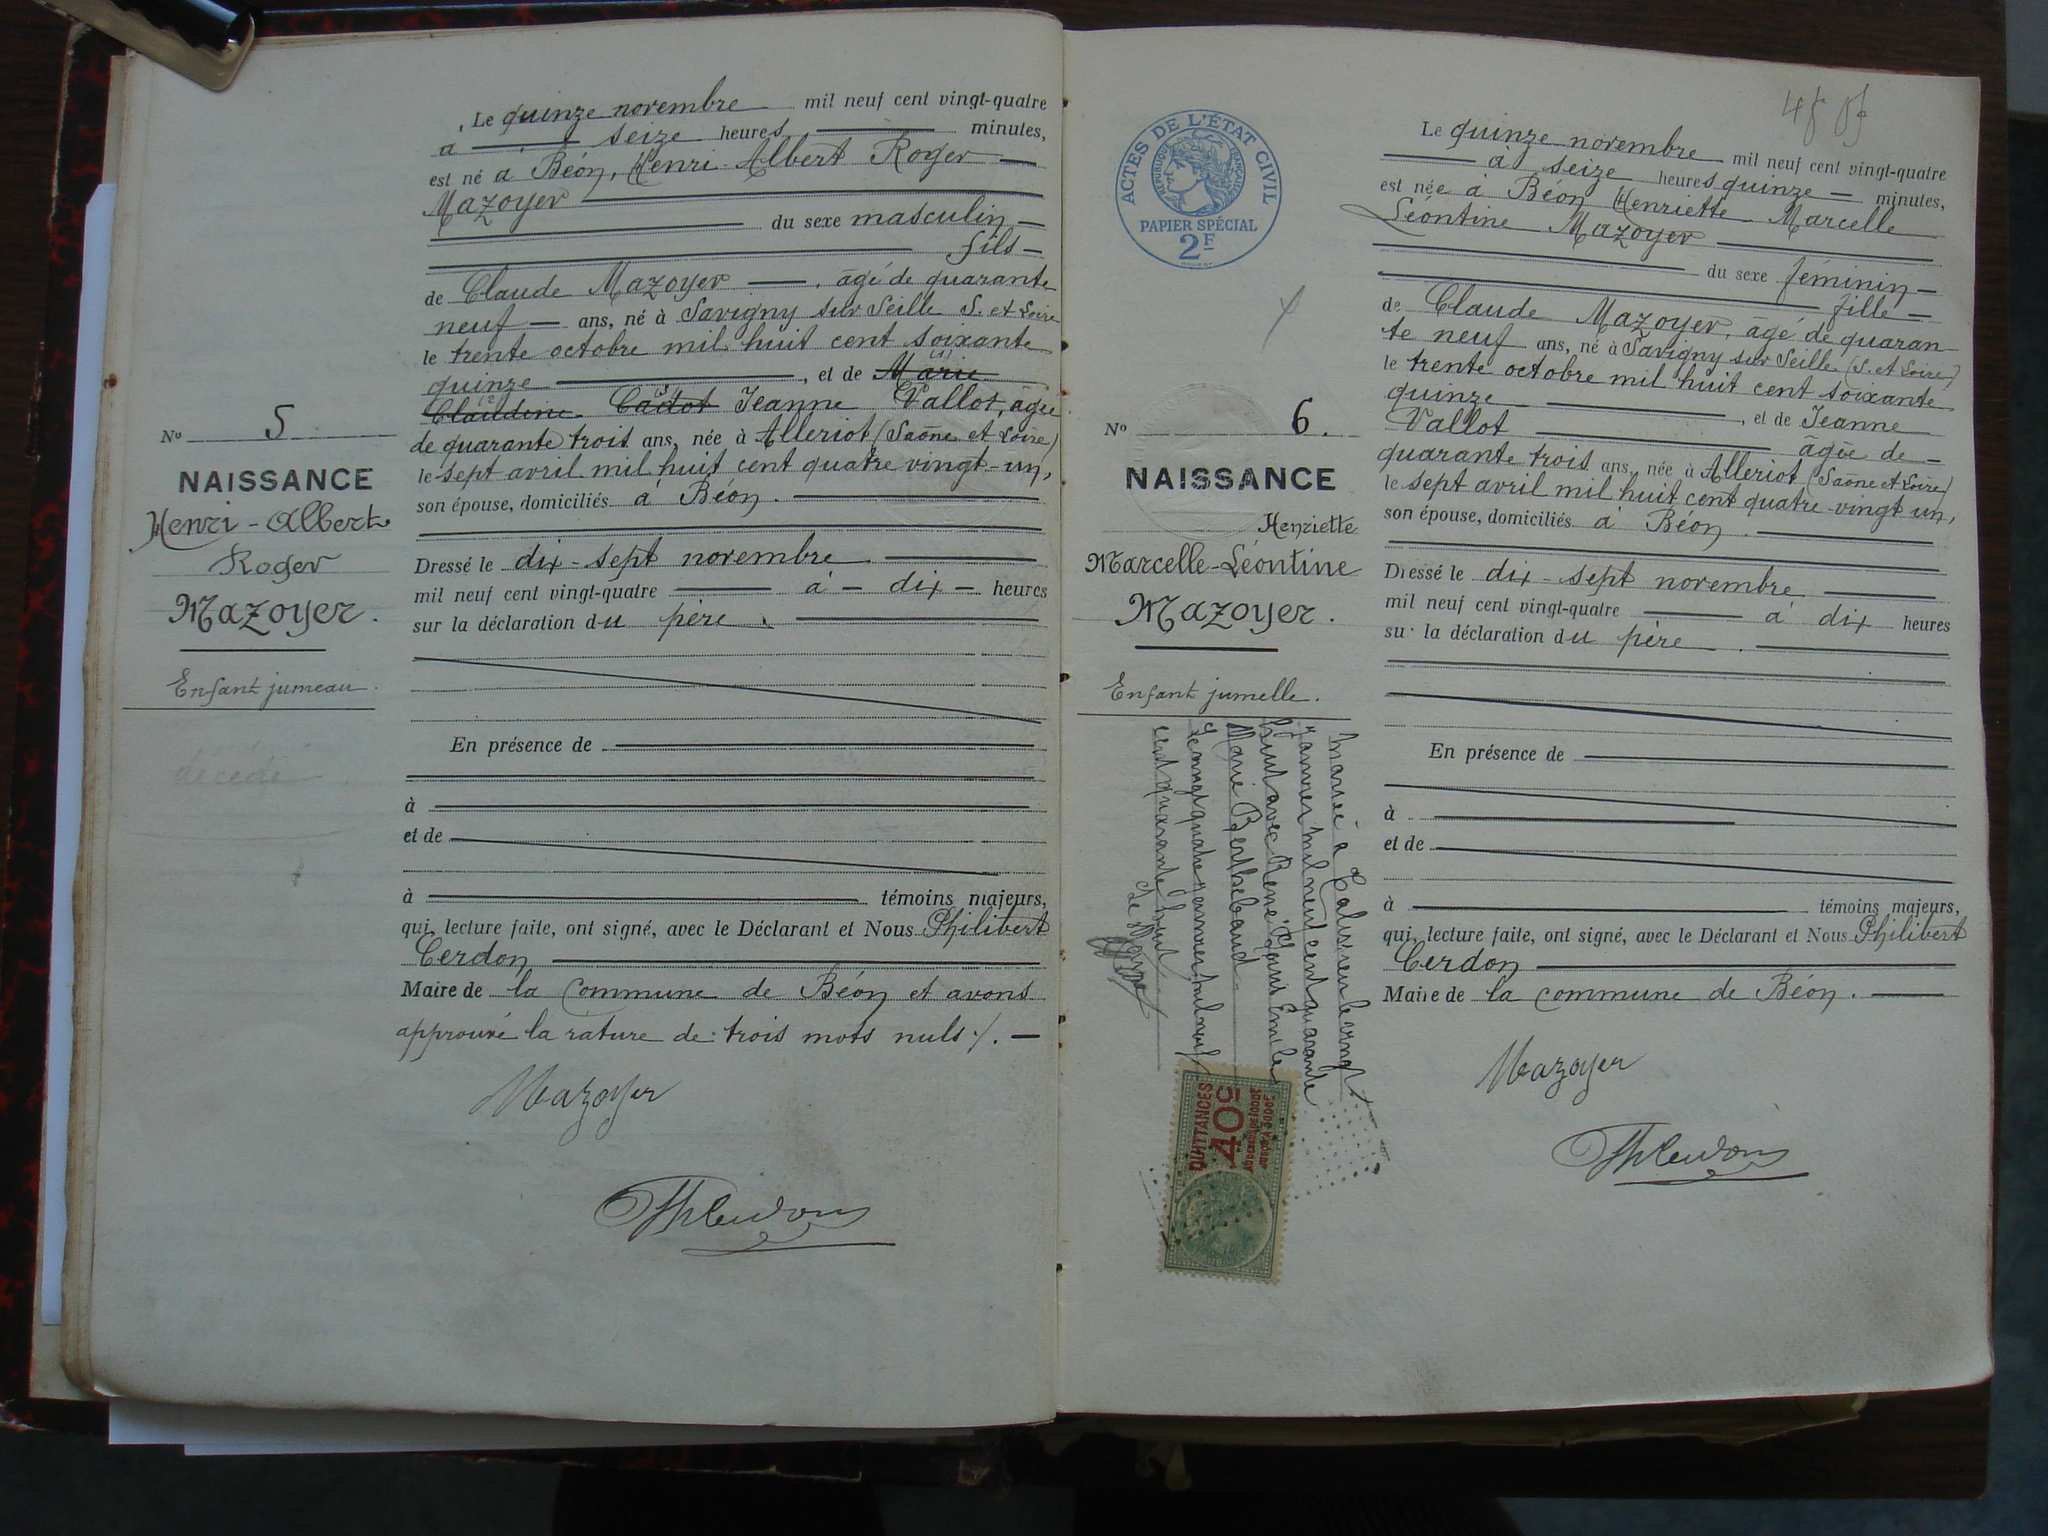 Le quinze novembre mil neuf cent vingt-quatre
à seize heures minutes,
est né à Béon, Henri-Albert Roger
Mazoyer
du sexe masculin
fils
de Claude Mazoyer, âgé de quarante
neuf ans, né à Savigny sur Seille S. et Loire
le trente octobre mil huit cent soixante
quinze, et de Marie
Claudine Cadot Jeanne Vallot, âgée
de quarante trois ans, née à Alleriot (Saône et Loire)
le sept avril mil huit cent quatre vingt-un,
son épouse, domiciliés à Béon.
Dressé le dix-sept novembre
mil neuf cent vingt-quatre à dix heures
sur la déclaration du père.
En présence de
à
et de
à témoins majeurs,
qui, lecture faite, ont signé, avec le Déclarant et Nous Philibert
Cerdon
Maire de la commune de Béon et avons
approuvé la rature de: trois mots nuls ./.
Mazoyer
No 5
NAISSANCE
Henri-Albert
Roger
Mazoyer.
Enfant jumeau.
décédé
ACTES DE L'ÉTAT CIVIL
RÉPUBLIQUE FRANÇAISE
PAPIER SPÉCIAL
2F
No 6.
NAISSANCE
Henriette
Marcelle-Léontine
Mazoyer.
Enfant jumelle.
Mariée à le vingt
janvier mil neuf cent quarante
huit avec René Louis Emile
Marie Berthebaud.
Le vingt quatre janvier mil neuf
cent quarante huit
Le Maire
QUITTANCES
40c
Le quinze novembre mil neuf cent vingt-quatre
à seize heures quinze minutes,
est née à Béon Henriette Marcelle
Léontine Mazoyer
du sexe féminin
fille
de Claude Mazoyer, âgé de quaran
te neuf ans, né à Savigny sur Seille (S. et Loire)
le trente octobre mil huit cent soixante
quinze, et de Jeanne
Vallot âgée de
quarante trois ans, née à Alleriot (Saône et Loire)
le sept avril mil huit cent quatre vingt un,
son épouse, domiciliés à Béon.
Dressé le dix-sept novembre
mil neuf cent vingt-quatre à dix heures
sur la déclaration du père.
En présence de
à
et de
à témoins majeurs,
qui, lecture faite, ont signé, avec le Déclarant et Nous Philibert
Cerdon
Maire de la commune de Béon.
Mazoyer